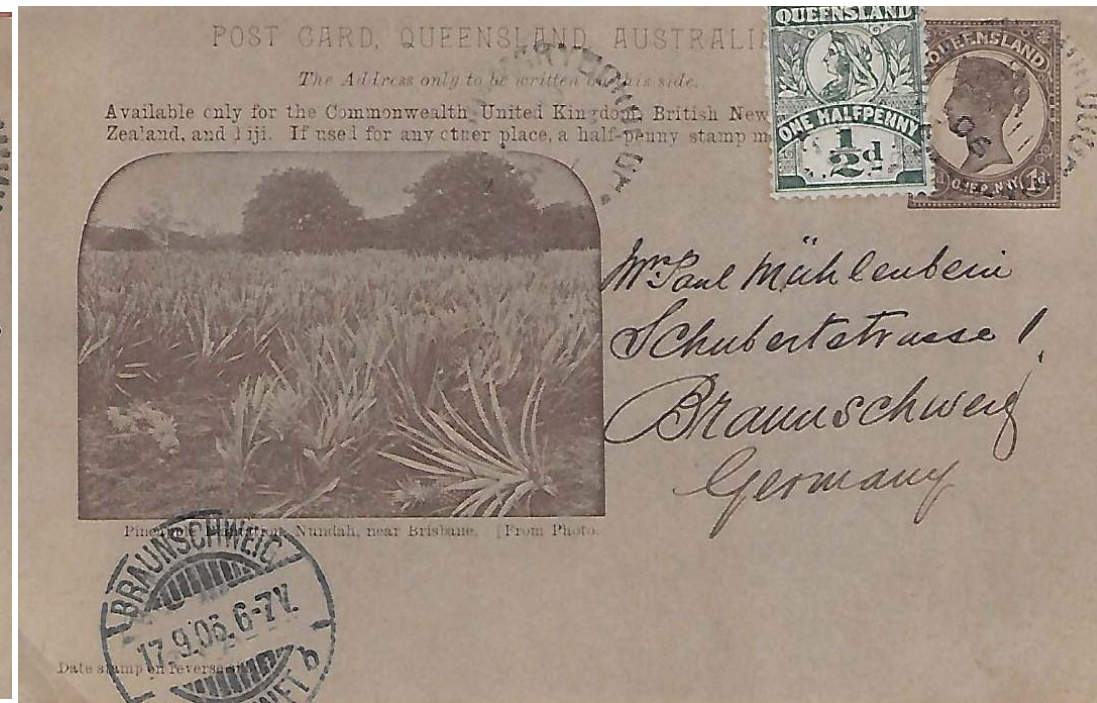 POST CARD, QUEENSLAND, AUSTRALI
The Address only to be written on this side.
Available only for the Commonwealth United Kingdom, British New
Zealand, and Fiji. If used for any other place, a half-penny stamp m
QUEENSLAND
ONE HALFPENNY
1/2d
QUEENSLAND
ONE PENNY 1d
06
Mr Paul Mühlenbein
Schubertstrasse 1
Braunschweig
Germany
Pineapple Plantation, Nundah, near Brisbane. [From Photo.
BRAUNSCHWEIG
17.9.06. 6-7V.
b
Date stamp on reverse